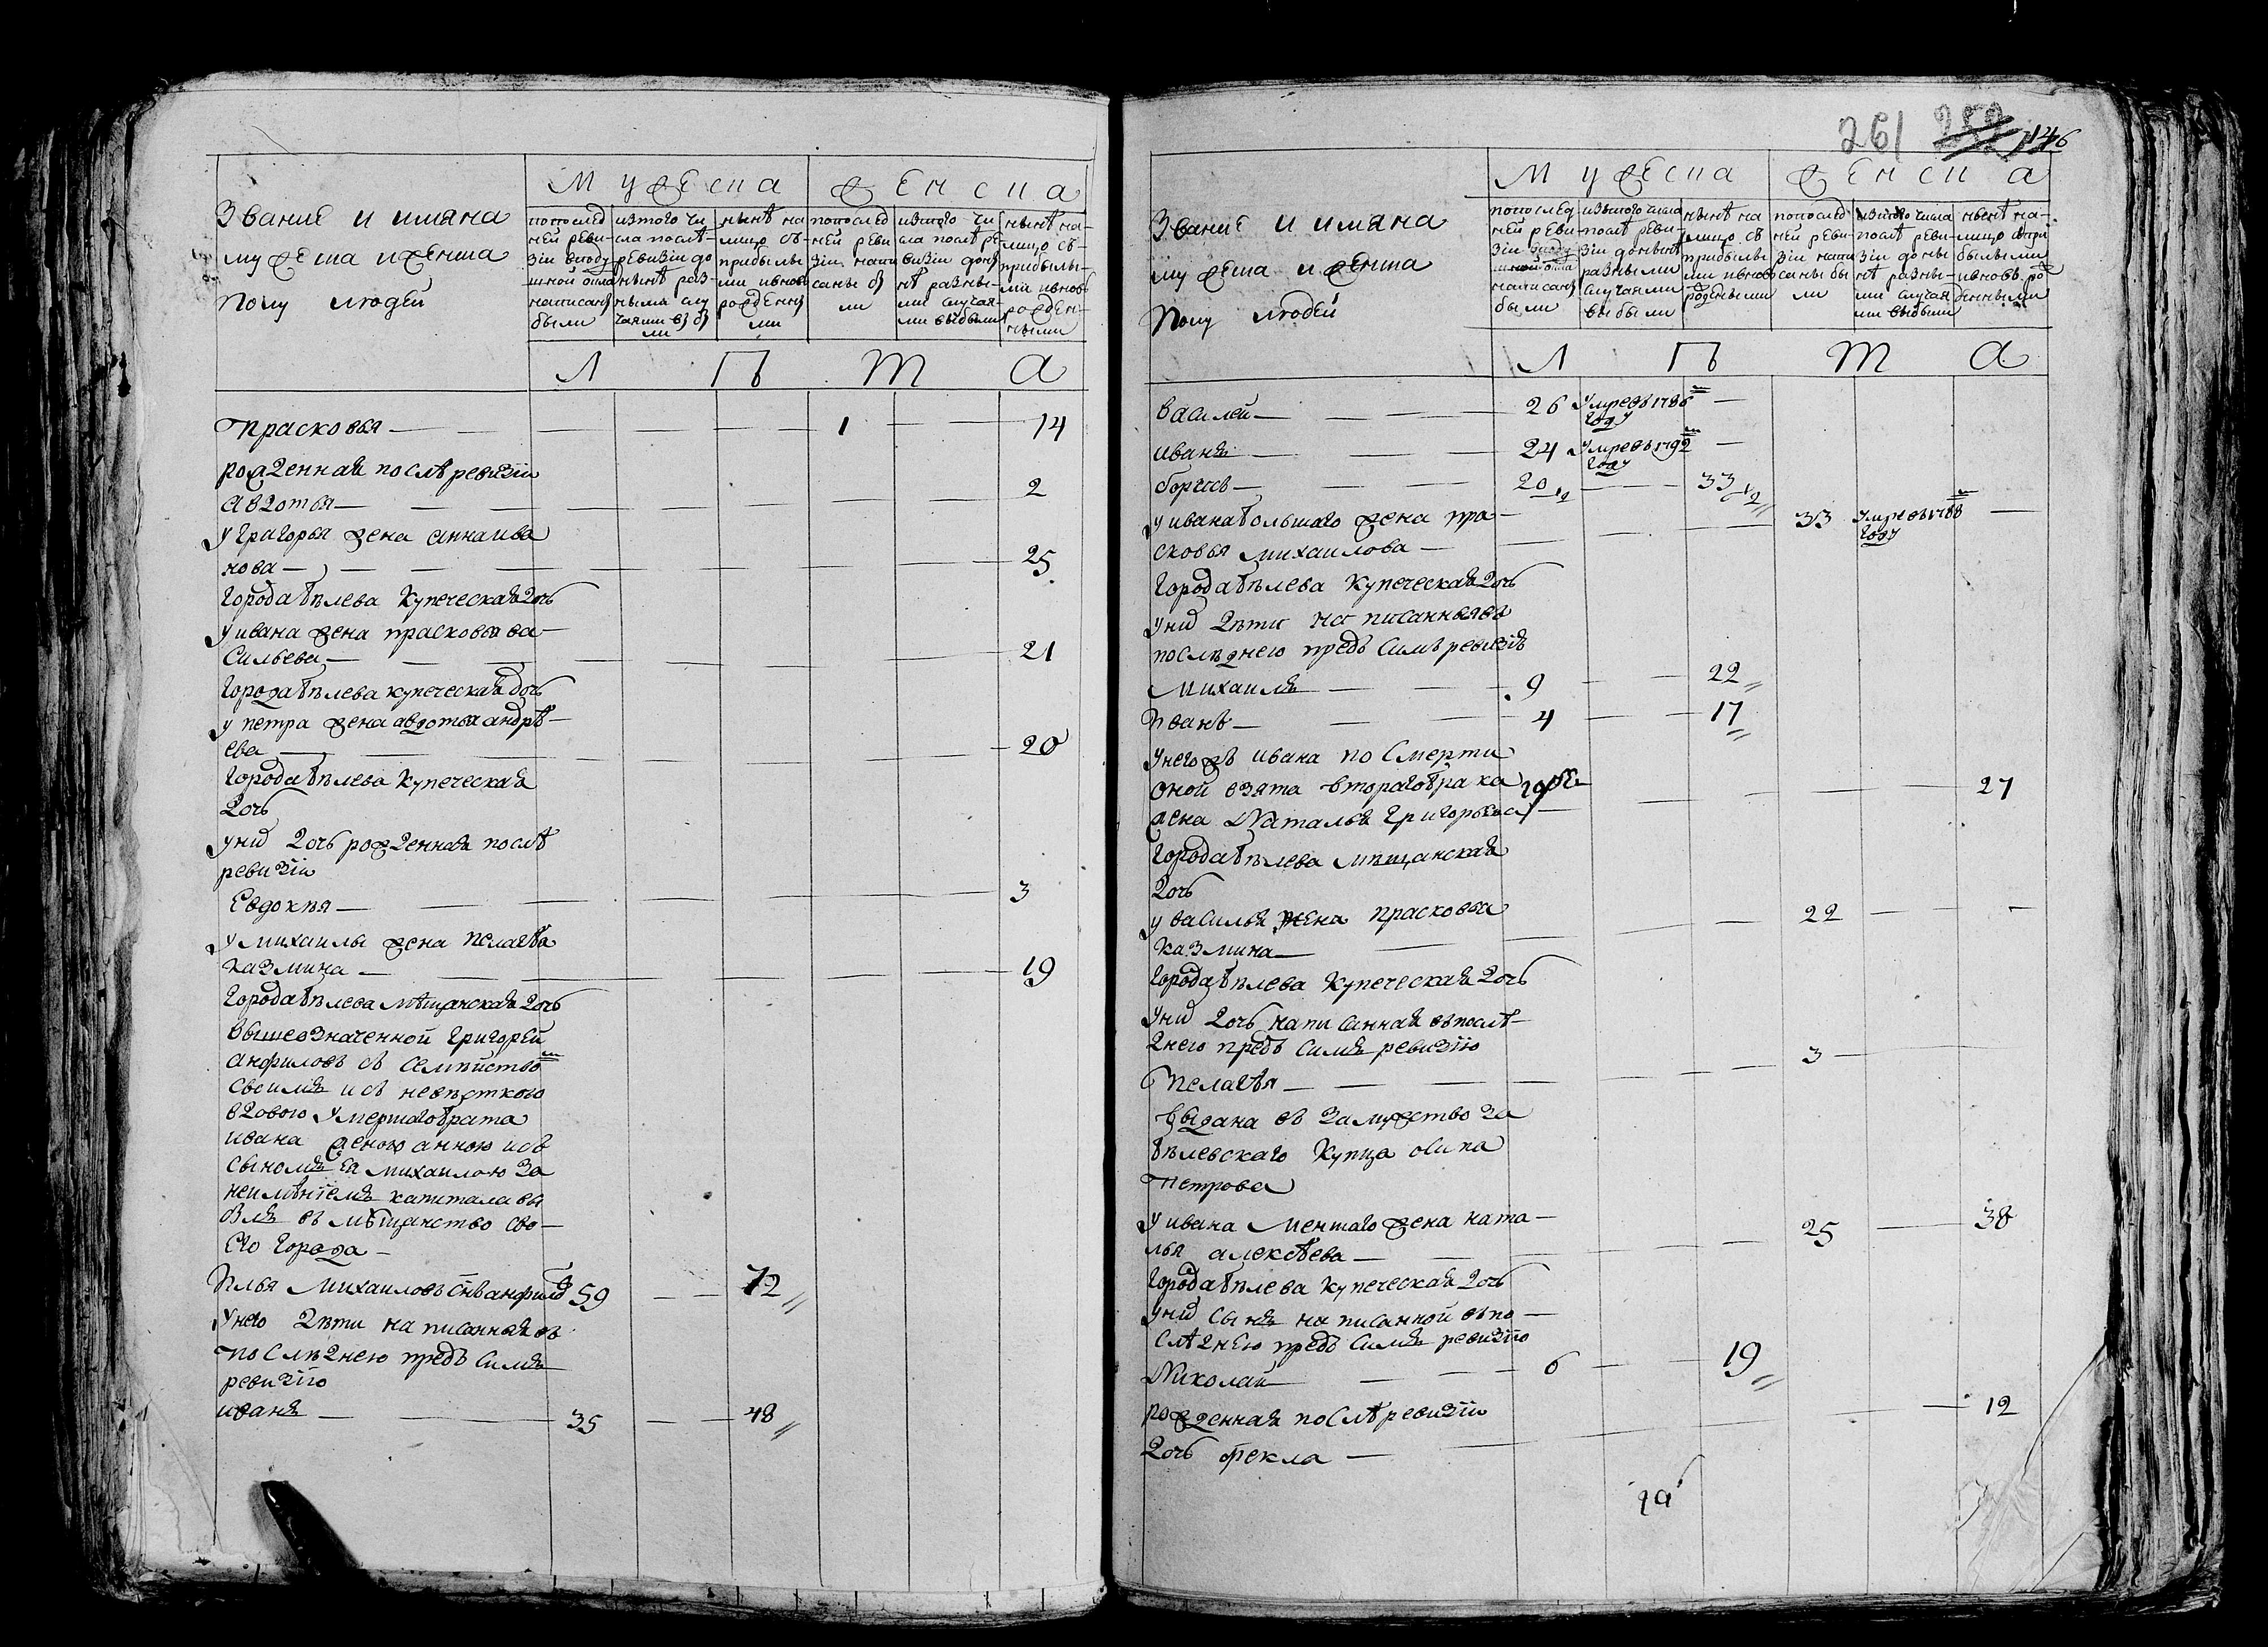 Звание и имяна
мужеска и женска
полу людей
Мужеска
Женска
попослед
ней реви-
зіи
написаны
были
изтого чи
сла послѣ
ревизіи до
нынѣ раз-
ными слу
чаями
нынѣ на
лицо съ
прибылы
ми ивновь
рожденны
ми
попослед
ней реви
зіи напи
саны бы
ли
изтого чи
сла послѣ ре
визіи донн
нѣ разны-
ми случая-
ми выбыли
нынѣ на-
лицо съ
прибылы-
ми ивновь
рожден-
ными
Л ѣ т а
Прасковья — 1 — 14
рожденная послѣ ревизіи
Авдотья — 2
у Григорья жена анна ива
нова — 25
города бѣлева купеческая дочь
у ивана жена прасковья ва-
сильева — 21
города бѣлева купеческая дочь
у петра жена авдотья андрѣ-
ева — 20
города бѣлева купеческая
дочь
у них дочь рожденная послѣ
ревизіи
Евдокѣя — 3
у михаилы жена пелагѣя
казмина — 19
города бѣлева мѣщанская дочь
вышеозначенной григорей
анфиловъ съ семѣйство
своимъ исъ невѣсткою
вдовою умершаго брата
ивана женою анною исъ
сыномъ ея михаилою за
неимѣніемъ капитала вы
былъ въ мѣщанство сво-
его города —
Илья Михаиловъ снъ анфилов 59 — 72
у него дѣти написанныя въ
последнею предъ симъ
ревизію
иванъ — 35 — 48
261 252 146
Звание и имяна
мужеска и женска
полу людей
Мужеска
Женска
попослед
ней реви-
зіи
написаны
были
изтого числа
послѣ реви-
зіи донынѣ
разными
случаями
выбыли
нынѣ на
лицо съ
прибылы
ми ивновь
рожденными
попослед
ней реви-
зіи напи
саны бы
ли
изтого числа
послѣ реви-
зіи до ны
нѣ разны-
ми случая
ми выбыли
нынѣ на-
лицо спри
былыми
ивновь рож
денными
Л ѣ т а
василей — 26 Умре въ 1786 —
году
иванъ — 24 Умре въ 1792 —
году
борисъ — 20 — 33
у ивана большаго жена пра- 33 Умре въ 1788 —
сковья михаилова — году
города бѣлева купеческая дочь
у них дѣти написанныя въ
последнею предъ симъ ревизію
Михаилъ — 9 — 22
Иванъ — 4 — 17
у него жъ ивана по смерти
оной взята втораго брака 27
жена Наталья григорьева —
города бѣлева мѣщанская
дочь
у василья жена прасковья 22 — —
казмина —
города бѣлева купеческая дочь
у них дочь написанная въ послѣ-
днею предъ симъ ревизію 3 —
Пелагѣя —
выдана въ замужество за
бѣлевскаго купца осипа
Петрова
у ивана меншаго жена ната- 25 — 38
лья алексѣева —
города бѣлева купеческая дочь
у них сынъ написанной въ по-
слѣднею предъ симъ ревизію
Николай — 6 — 19
рожденная послѣ ревизіи 12
дочь фекла —